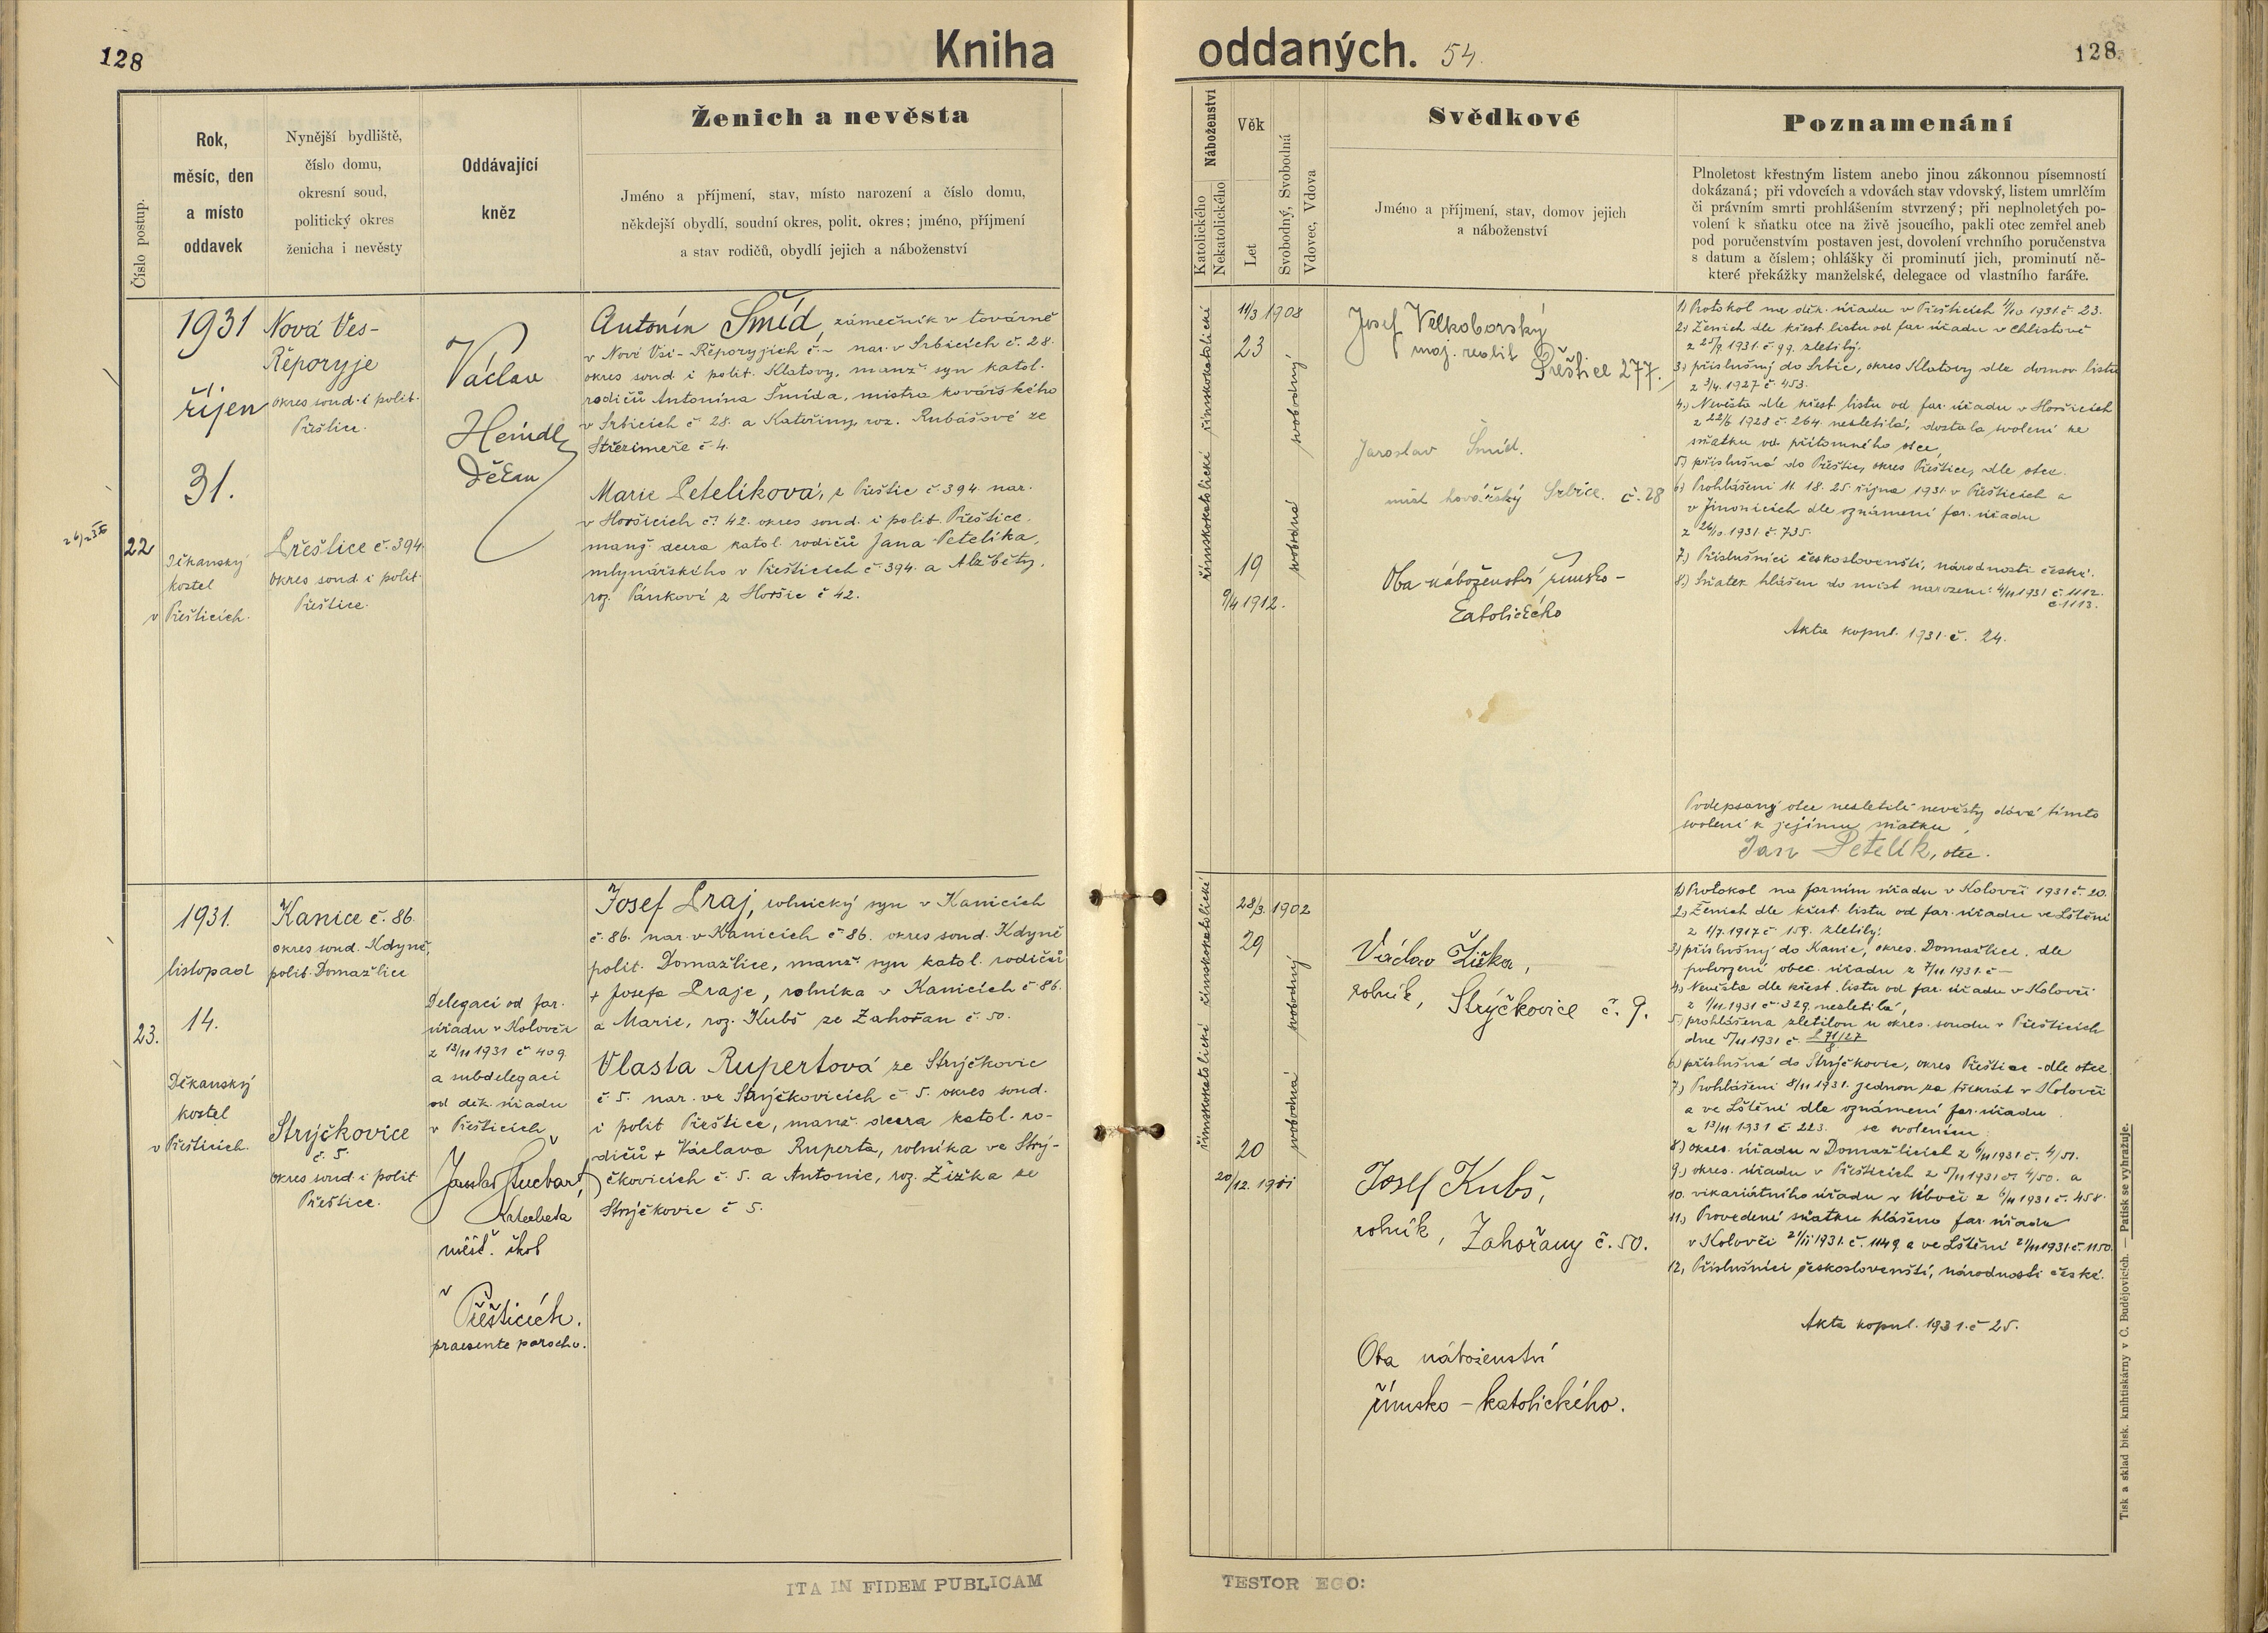 128
Kniha
oddaných. 54.
128
Číslo postup.
Rok,
měsíc, den
a místo
oddavek
Nynější bydliště,
číslo domu,
okresní soud,
politický okres
ženicha i nevěsty
Oddávající
kněz
Ženich a nevěsta
Jméno a příjmení, stav, místo narození a číslo domu,
někdejší obydlí, soudní okres, polit. okres; jméno, příjmení
a stav rodičů, obydlí jejich a náboženství
Náboženství
Katolického
Nekatolického
Věk
Let
Svobodný, Svobodná
Vdovec, Vdova
Svědkové
Jméno a příjmení, stav, domov jejich
a náboženství
Poznamenání
Plnoletost křestným listem anebo jinou zákonnou písemností
dokázaná; při vdovcích a vdovách stav vdovský, listem umrlčím
či právním smrti prohlášením stvrzený; při neplnoletých po-
volení k sňatku otce na živě jsoucího, pakli otec zemřel aneb
pod poručenstvím postaven jest, dovolení vrchního poručenstva
s datum a číslem; ohlášky či prominutí jich, prominutí ně-
které překážky manželské, delegace od vlastního faráře.
22
1931
říjen
31.
Děkanský
kostel
v Přešticích.
Nová Ves-
Řeporyje
okres soud. i polit.
Přeštice.
Přeštice č. 394.
okres soud. i polit.
Přeštice.
Václav
Heindl
děkan
Antonín Šmíd, zámečník v továrně
v Nové Vsi-Řeporyjích č. - nar. v Srbicích č. 28.
okres soud. i polit. Klatovy, manž. syn katol.
rodičů Antonína Šmída, mistra kovářského
v Srbicích č. 28. a Kateřiny roz. Rubášové ze
Střezimeře č. 4.
Marie Petelíková, z Přeštic č. 394. nar.
v Horšicích č. 42. okres soud. i polit. Přeštice,
manž. dcera katol. rodičů Jana Petelíka,
mlynářského v Přešticích č. 394. a Alžběty,
roz. Pánkové z Horšic č. 42.
římskokatolické
římskokatolické
11/3 1908
23
svobodný
svobodná
19
9/4 1912.
Josef Velkoborský
maj. realit
Přeštice 277.
Jaroslav Šmíd.
mistr kovářský Srbice. č. 28
Oba náboženství římsko-
katolického
1) Protokol na děk. úřadu v Přešticích 1/10 1931 č. 23.
2) Ženich dle křest. listu od far. úřadu v Chlistově
z 25/9 1931. č. 99. zletilý.
3) příslušný do Srbic, okres Klatovy dle domov. listu
z 3/4. 1927 č. 453.
4.) Nevěsta dle křest. listu od far. úřadu v Horšicích
z 22/6 1928 č. 264. nezletilá, dostala svolení ke
sňatku od přítomného otce,
5.) příslušná do Přeštic, okres Přeštice, dle otce.
6) Prohlášeni 11. 18. 25. října 1931 v Přešticích a
v Jinonicích dle oznámení far. úřadu
z 26/10. 1931 č. 735.
7.) Příslušníci českoslovenští, národnosti české.
8.) Sňatek hlášen do míst narození: 4/11 1931 č. 1112.
č. 1113.
Akta kopul. 1931. č. 24.
Podepsaný otec nezletilé nevěsty dává tímto
svolení k jejímu sňatku
Jan Petelík, otec.
23.
1931.
listopad
14.
Děkanský
kostel
v Přešticích.
Kanice č. 86
okres soud. Kdyně,
polit. Domažlice
Strýčkovice
č. 5.
okres soud. i polit.
Přeštice.
Delegací od far.
úřadu v Kolovči
z 13/11 1931 č. 409
a subdelegací
od děk. úřadu
v Přešticích
katecheta
měšť. škol
v
Přešticích.
praesente parocho.
Josef Praj, rolnický syn v Kanicích
č. 86. nar. v Kanicích č. 86. okres soud. Kdyně
polit. Domažlice, manž. syn katol. rodičů
+ Josefa Praje, rolníka v Kanicích č. 86.
a Marie, roz. Kubš ze Zahořan č. 50.
Vlasta Rupertová ze Strýčkovic
č. 5. nar. ve Strýčkovicích č. 5. okres soud.
i polit Přeštice, manž. dcera katol. ro-
dičů + Václava Ruperta, rolníka ve Strý-
čkovicích č. 5. a Antonie, roz. Žižka ze
Strýčkovic č 5.
římskokatolické
římskokatolické
28/3. 1902
29
svobodný
svobodná
20
20/12. 1911
Václav Žižka,
rolník, Strýčkovice č. 9.
Josef Kubš,
rolník, Zahořany č. 50.
Oba náboženství
římsko-katolického.
1) Protokol na farním úřadu v Kolovči 1931 č. 20.
2.) Ženich dle křest. listu od far. úřadu ve Lštění
z 1/7. 1917 č. 159. zletilý.
3) příslušný do Kanic, okres. Domažlice. dle
potvrzení obec. úřadu z 7/11 1931. č —
4) Nevěsta dle křest. listu od far. úřadu v Kolovči
z 1/11 1931 č. 329. nezletilá,
5. prohlášena zletilou u okres. soudu v Přešticích
dne 5/11 1931 č.
6) příslušná do Strýčkovic, okres Přeštice - dle otce.
7.) Prohlášeni 8/11 1931. jednou za třikrát v Kolovči
a ve Lštění dle oznámení far. úřadu
z 13/11 1931 č. 223. se svolením
8.) okres. úřadu v Domažlicích z 6/11 1931 č. 4/51.
9.) okres. úřadu v Přešticích z 5/11 1931 č. 4/50. a
10. vikariátního úřadu v Úboči z 6/11 1931 č. 458.
11.) Provedení sňatku hlášeno far. úřadu
v Kolovči 21/11 1931. č. 1149. a ve Lštění 21/11 1931. č. 1150.
12, Příslušníci českoslovenští, národnosti české.
Akta kopul. 1931. č 25.
ITA IN FIDEM PUBLICAM
TESTOR EGO:
Tisk a sklad bisk. knihtiskárny v Č. Budějovicích. — Patisk se vyhražuje.